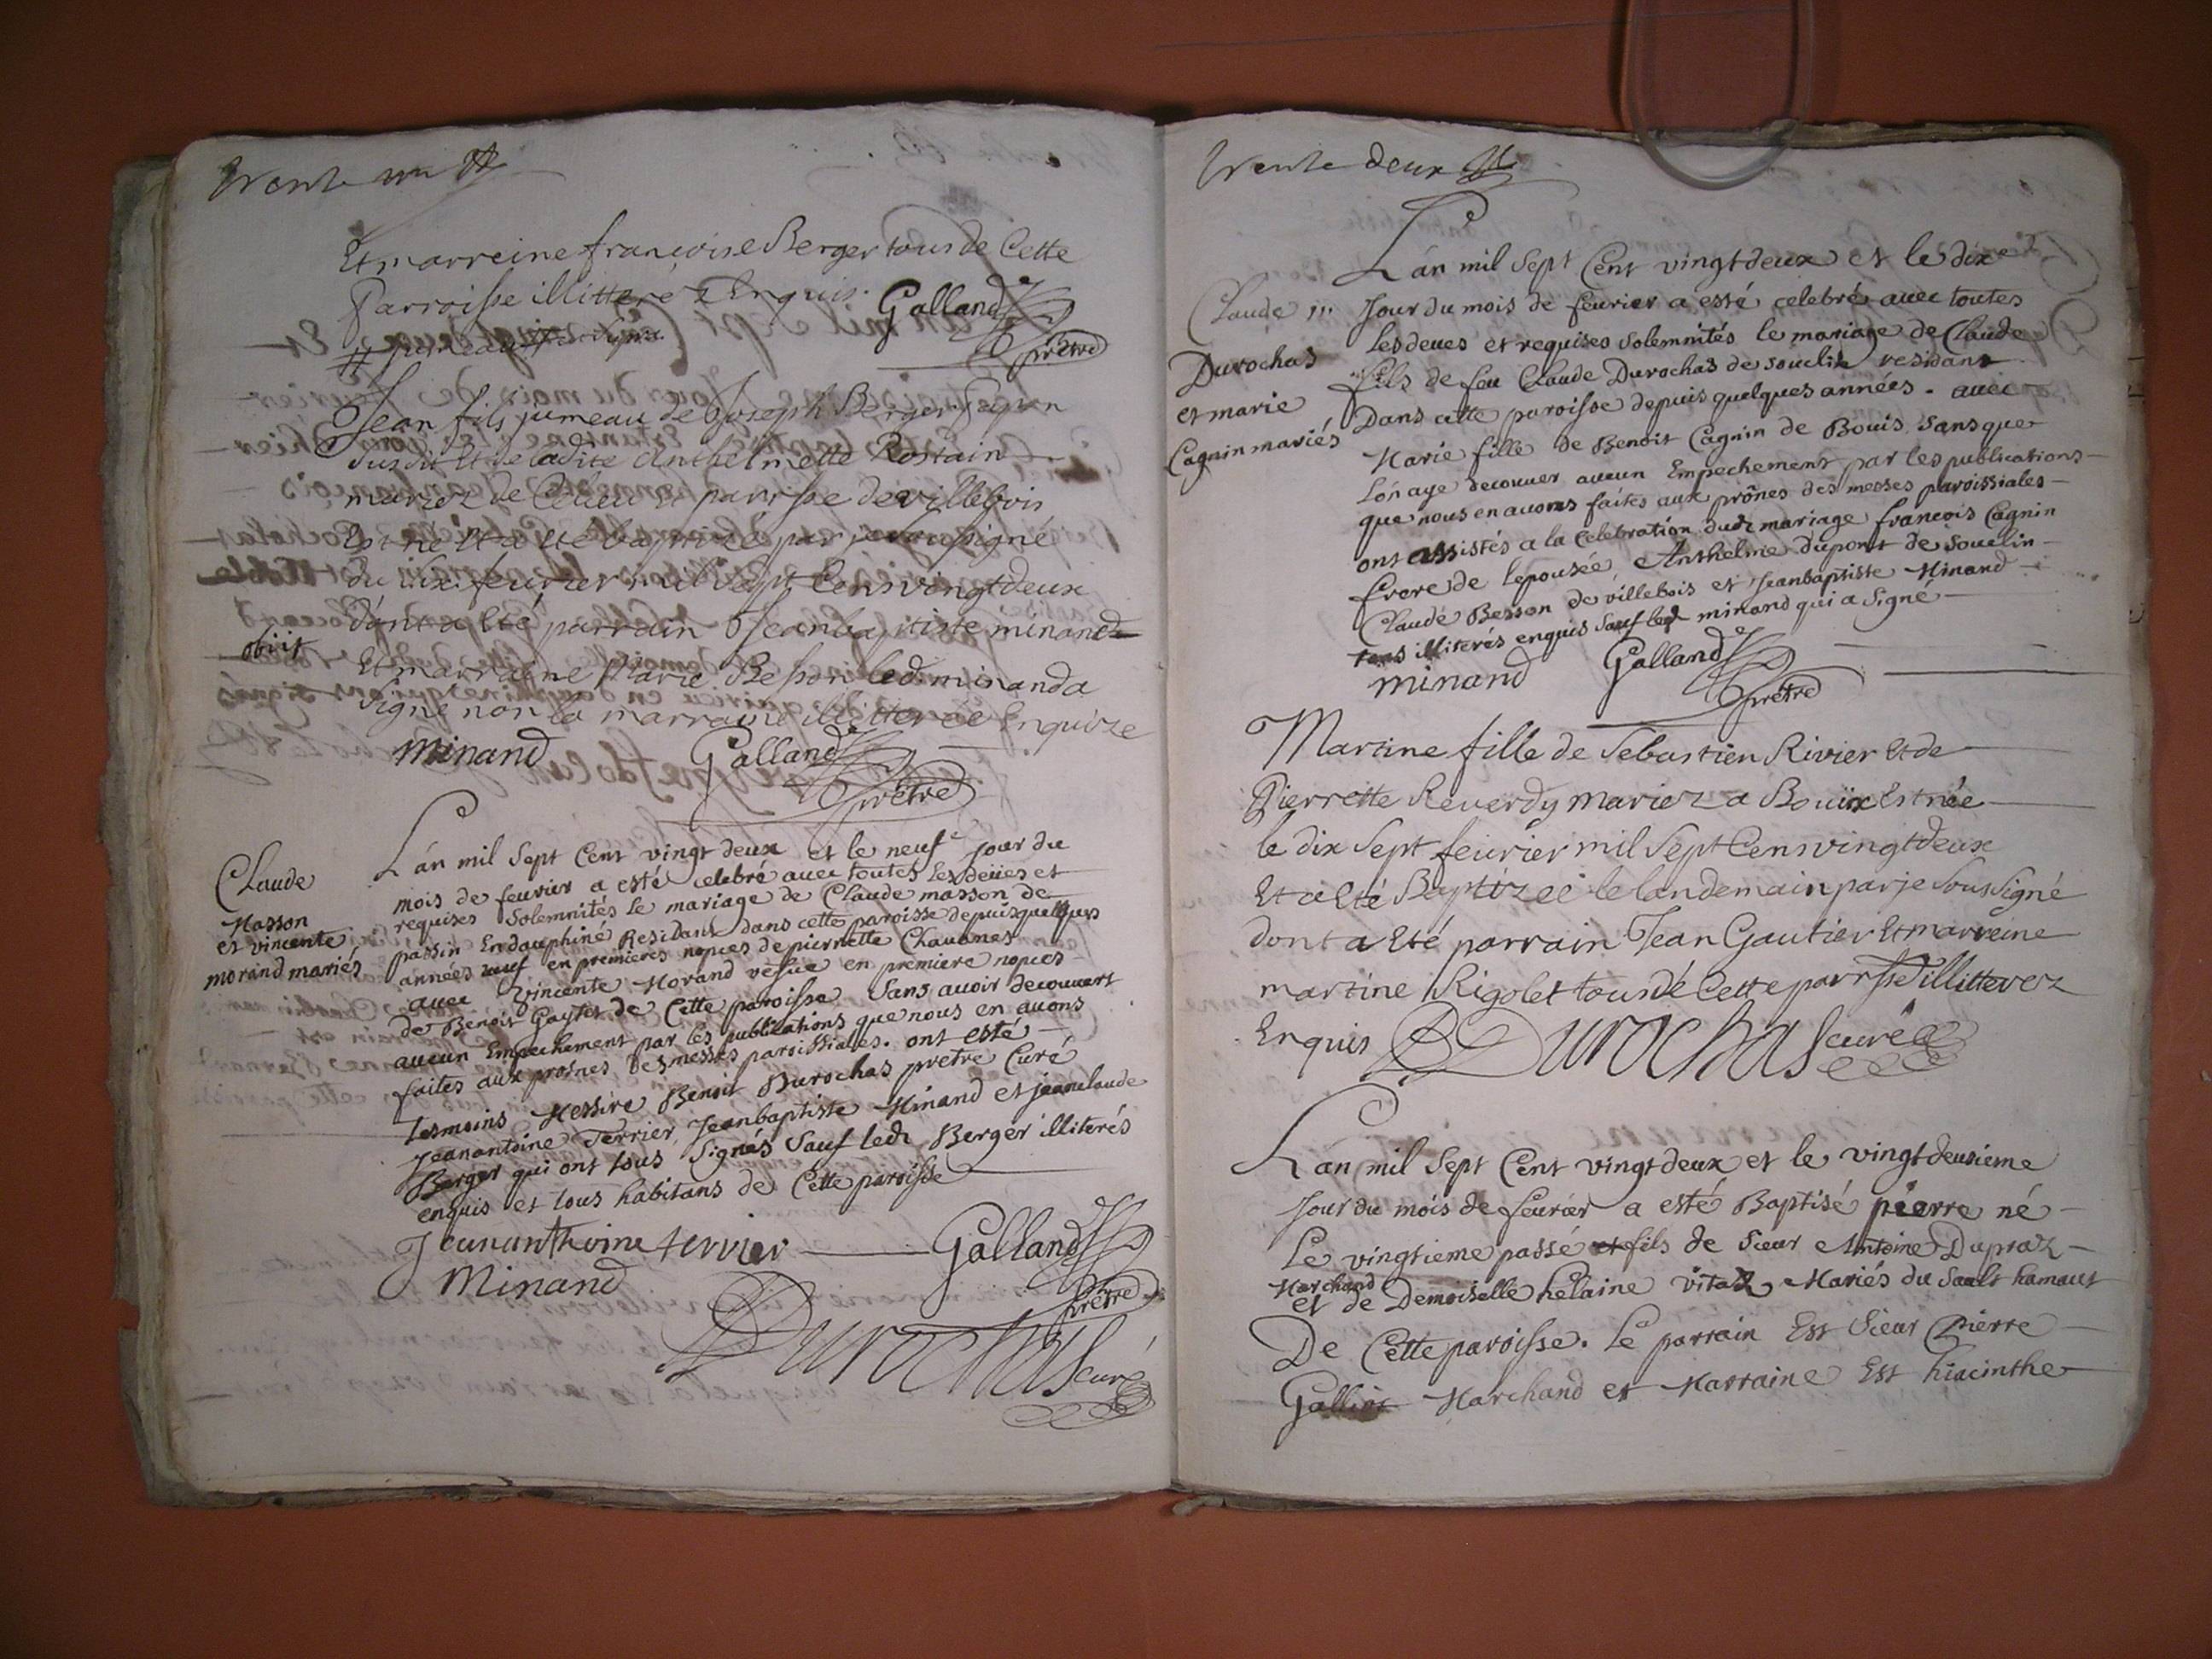 trente un
Et marreine françoise Berger tous de Cette
Parroisse illitteré z Enquis. Galland
prêtre
Jean fils jumeau de Joseph Berger
susdit Et de ladite Anthelmette Rostain
mariez de parrisse de villebois
Est né Et a eté baptizé par je soussigné
du dix feurier mil Sept Cens vingt deux
dont a Eté parrain Jeanbaptiste minand
obiit
Et marraine Marie Besson led. minand a
signé non la marraine illitterée Enquize
Minand Galland
prêtre
Claude
Masson
et vincente
morand mariés
Lán mil Sept Cent vingt deux et le neuf.e jour du
mois de feurier a esté celebré auec toutes les deües et
requises Solemnités le mariage de Claude masson de
passin En dauphiné Residant dans cette paroisse depuis quelques
années ueuf en premieres nopces de pierrette Chauanes
auec Vincente Morand vefue en premiere nopces
de Benoit Gaytet de Cette paroisse Sans auoir decouuert
aucun Empechement par les publications que nous en auons
faites aux prosnes des messes paroissiales. ont esté
tesmoins Messire Benoit Durochas pretre Curé
Jeanantoine Terrier, Jeanbaptiste Minand et jeanclaude
Berger qui ont tous Signés Sauf led. Berger illiterés
enquis et tous habitans de Cette paroisse
Jeananthoine terrier Galland
Minand prêtre
Durochas curé
trente deux
Claude
Durochas
et marie
Cagnin mariés
Lán mil Sept Cent vingt deux et le dix.e
Jour du mois de feurier a esté celebré auec toutes
les deues et requises Solemnités le mariage de Claude
fils de feu Claude Durochas de souclin residant
Dans cette paroisse depuis quelques années. auec
Marie fille de Benoit Cagnin de Bouis sans que
lón aye decouuer aucun Empechement par les publications
que nous en auons faites aux prônes des messes paroissiales
ont assistés a la Celebration dud. mariage francois Cagnin
frere de lepousée, Anthelme dupont de Souclin
Claude Besson de villebois et Jeanbaptiste Minand
tous illiterés enquis Sauf led. minand qui a Signé
minand Galland
prêtre
Martine fille de Sebastien Rivier Et de
Pierrette Reverdy mariez a Bouïx Est née
le dix Sept feurier mil Sept Cens vingt deux
Et a Eté Baptizeé le landemain par je Soussigné
dont a Eté parrain Jean Gautier Et marreine
martine Rigolet tous de Cette parrsse illitterez
Enquis Durochas curé
Lán mil Sept Cent vingt deux et le vingt deusieme
Jour du mois de feurier a esté Baptisé pierre né
Le vingtieme passé fils de Sieur Antoine Dupraz
Marchand
et de Demoiselle helaine vitaz Mariés du Sault hamaut
De Cette paroisse. Le parrain Est Sieur Pierre
Marchand et Marraine Est hiacinthe